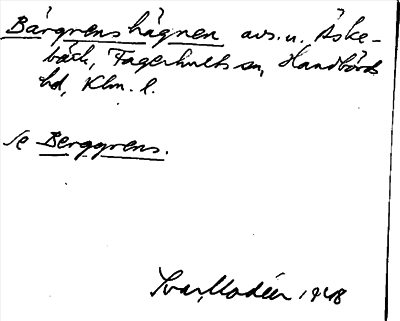 Bärgrenshägnen avs. u. Äske-
bäck, Fagerhults sn, Handbörds
hd, Klm. l.
se Berggrens.
Ivar Modéer 1948